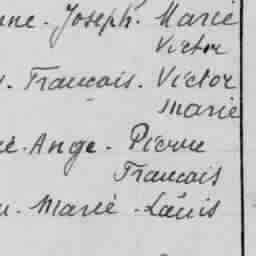 ne. Joseph. Marie
Victor
. Francois. Victor
Marie
é. Ange. Pierre
Francois
. Marie. Louis